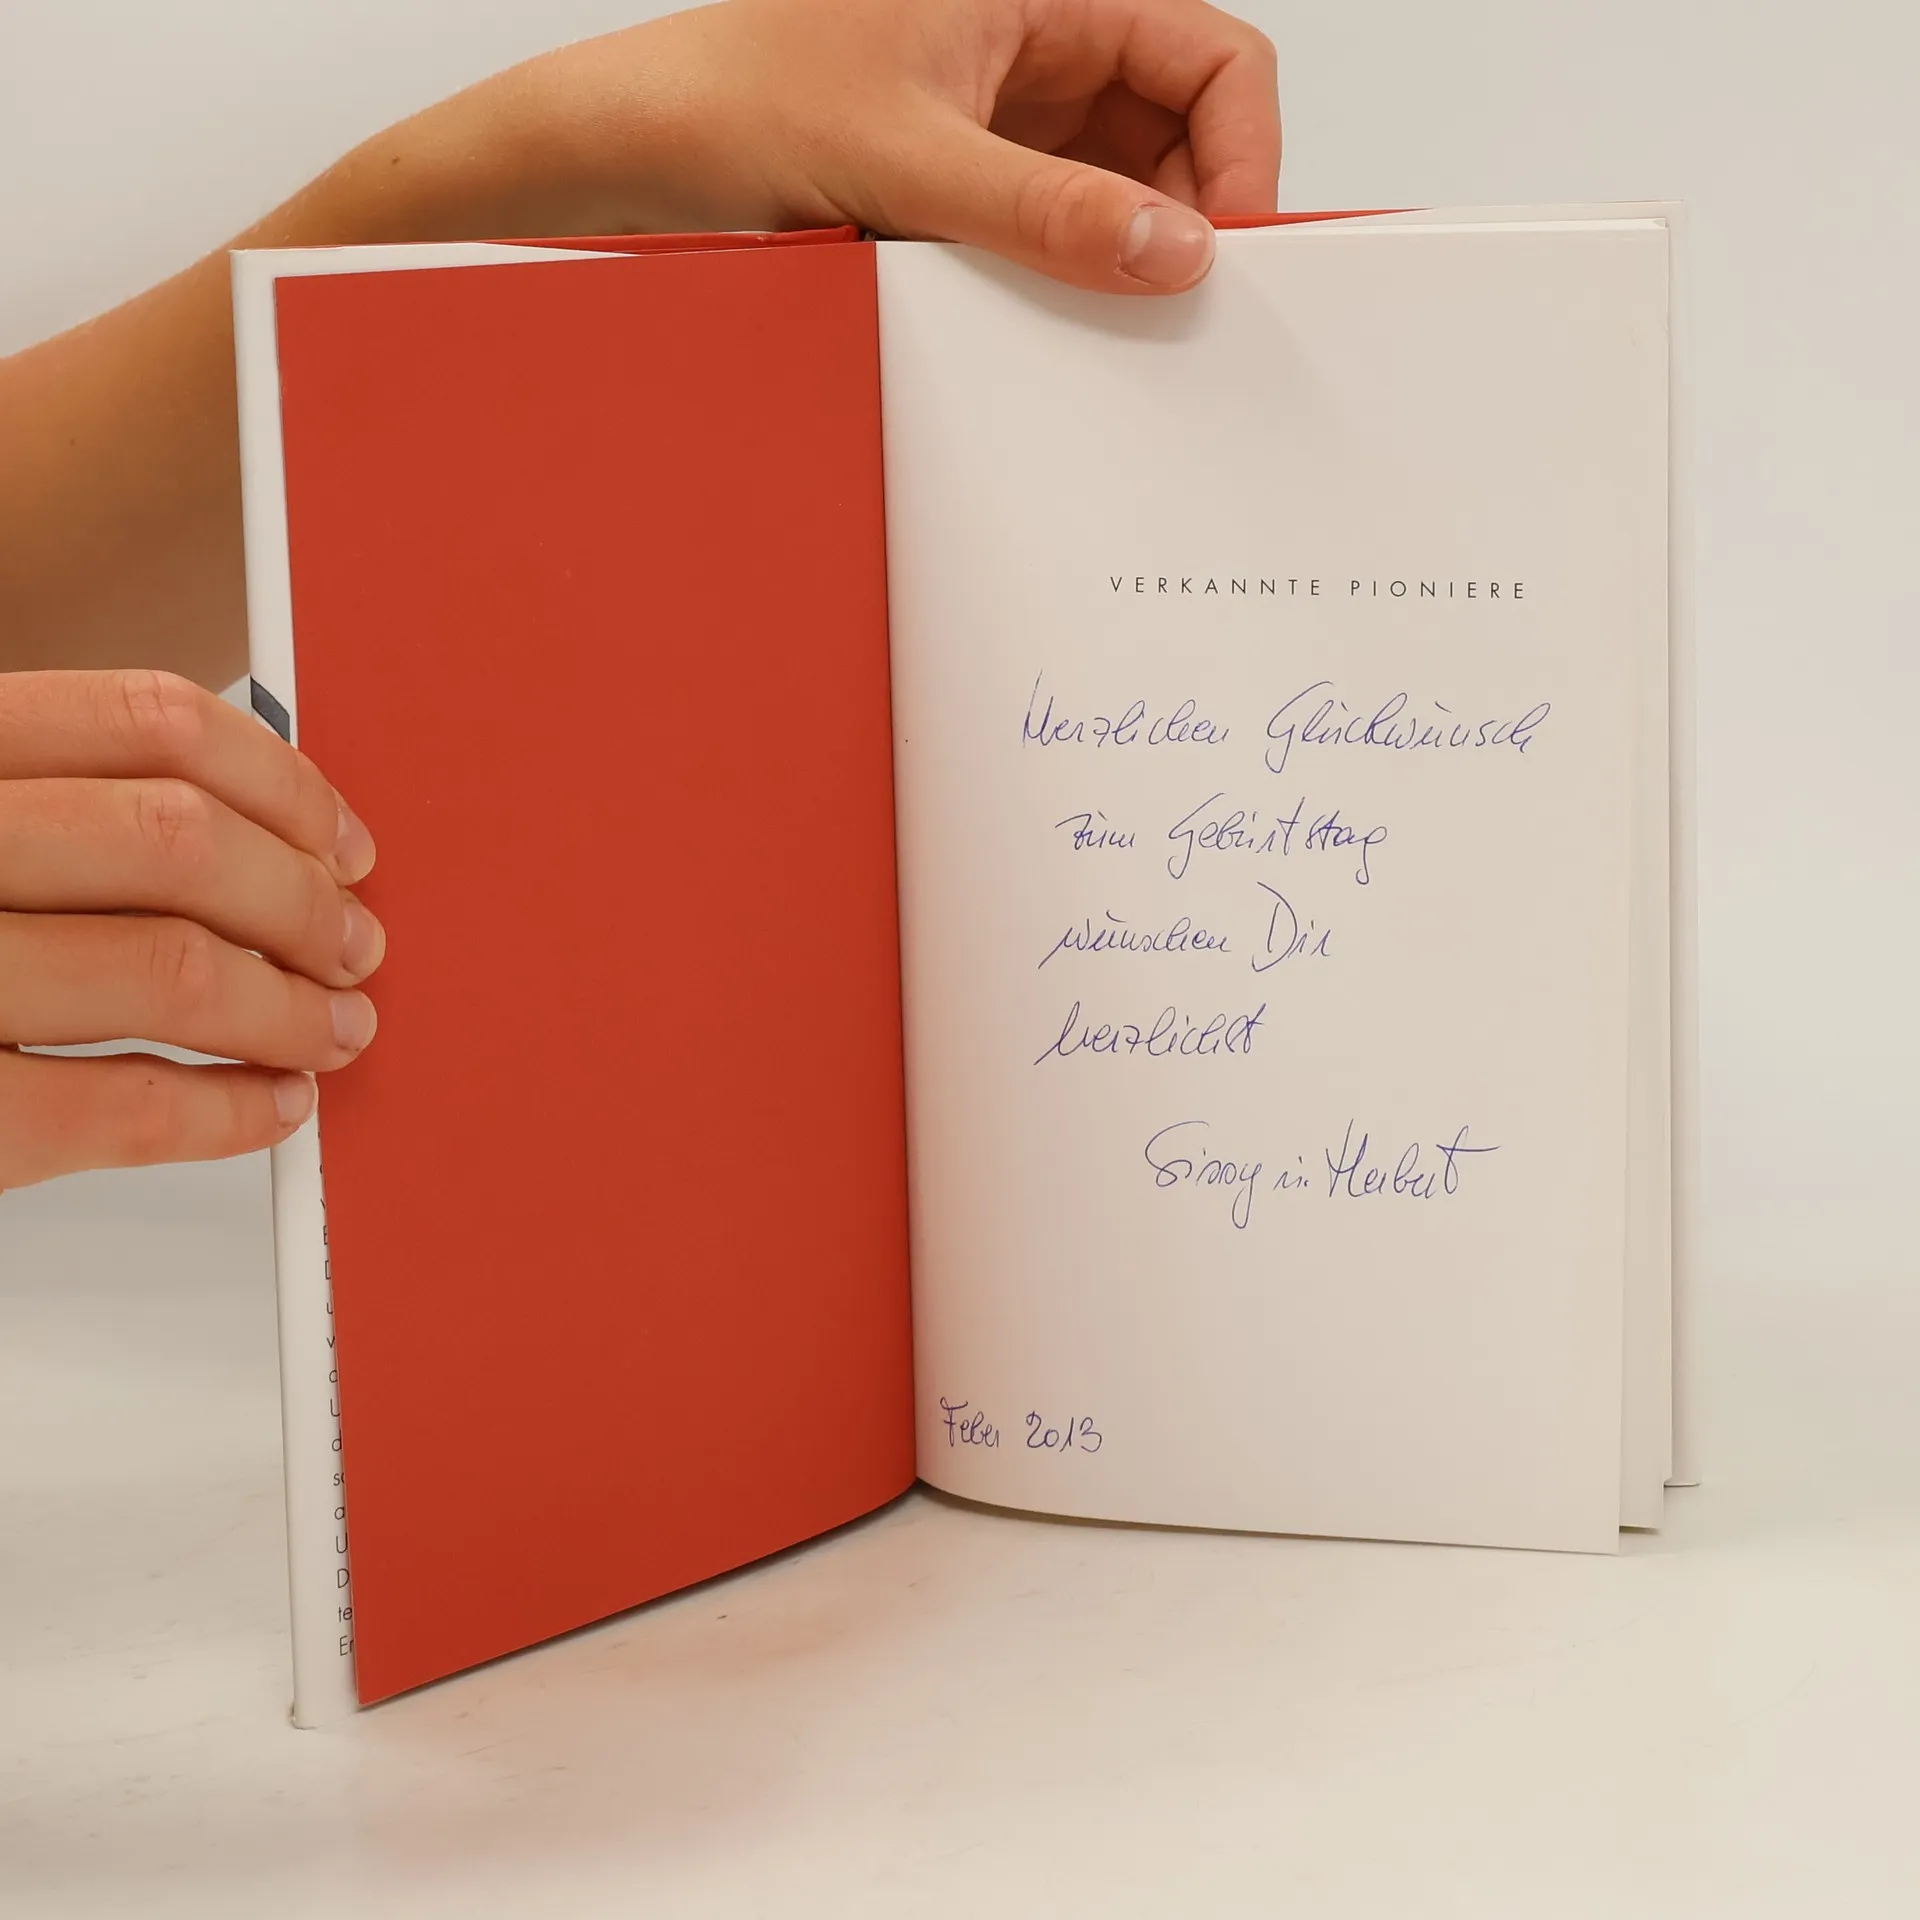 VERKANNTE PIONIERE
Herzlichen Glückwunsch
zum Geburtstag
wünschen Dir
herzlichst
Sissy u. Herbert
Feber 2013
V
E
D
u
v
d
U
d
sc
a
U
D
te
Er